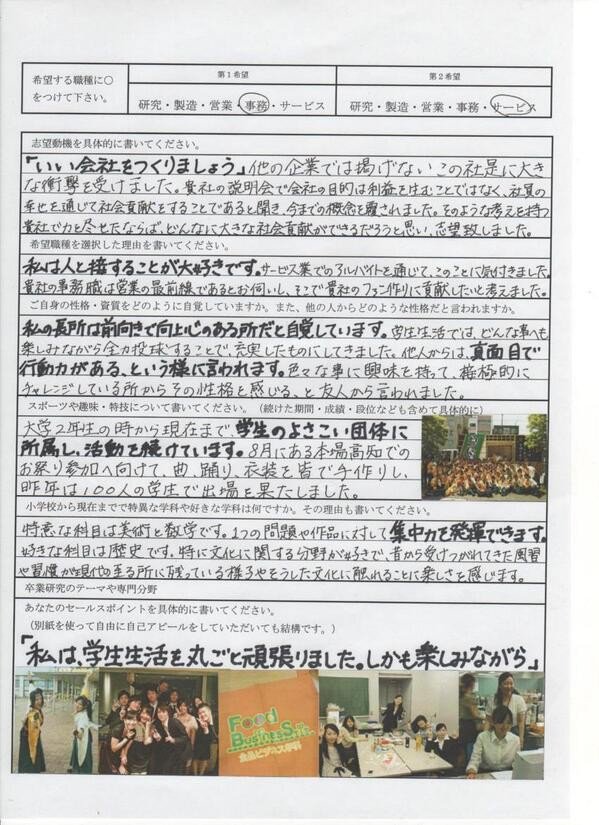 希望する職種に○
をつけて下さい。
第1希望
第2希望
研究・製造・営業・事務・サービス
研究・製造・営業・事務・サービス
志望動機を具体的に書いてください。
「いい会社をつくりましょう」他の企業では掲げないこの社是に大き
な衝撃を受けました。貴社の説明会で会社の目的は利益を生むことではなく、社員の
幸せを通じて社会貢献をすることであると聞き、今までの概念を覆されました。そのような考えを持つ
貴社で力を尽せたならば、どんなに大きな社会貢献ができるだろうと思い、志望致しました。
希望職種を選択した理由を書いてください。
私は人と接することが大好きです。サービス業でのアルバイトを通じて、このことに気付きました。
貴社の事務職は営業の最前線であるとお伺いし、そこで貴社のファン作りに貢献したいと考えました。
ご自身の性格・資質をどのように自覚していますか。また、他の人からどのような性格だと言われますか。
私の長所は前向きで向上心のある所だと自覚しています。学生生活では、どんな事へも
楽しみながら全力投球することで、充実したものにしてきました。他人からは、真面目で
行動力がある、という様に言われます。色々な事に興味を持って、積極的に
チャレンジしている所からその性格を感じる、と友人から言われました。
スポーツや趣味・特技について書いてください。（続けた期間・成績・段位なども含めて具体的に）
大学2年生の時から現在まで学生のよさこい団体に
所属し、活動を続けています。8月にある本場高知での
お祭り参加へ向けて、曲、踊り、衣装を皆で手作りし、
昨年は100人の学生で出場を果たしました。
小学校から現在までで特異な学科や好きな学科は何ですか。その理由も書いてください。
特意な科目は美術と数学です。1つの問題や作品に対して集中力を発揮できます。
好きな科目は歴史です。特に文化に関する分野が好きで、昔から受けつがれてきた風習
や習慣が現代の至る所に残っている様子やそうした文化に触れることに楽しさを感じます。
卒業研究のテーマや専門分野
あなたのセールスポイントを具体的に書いてください。
（別紙を使って自由に自己アピールをしていただいても結構です。）
「私は、学生生活を丸ごと頑張りました。しかも楽しみながら」
Food
Business
食品ビジネス学科